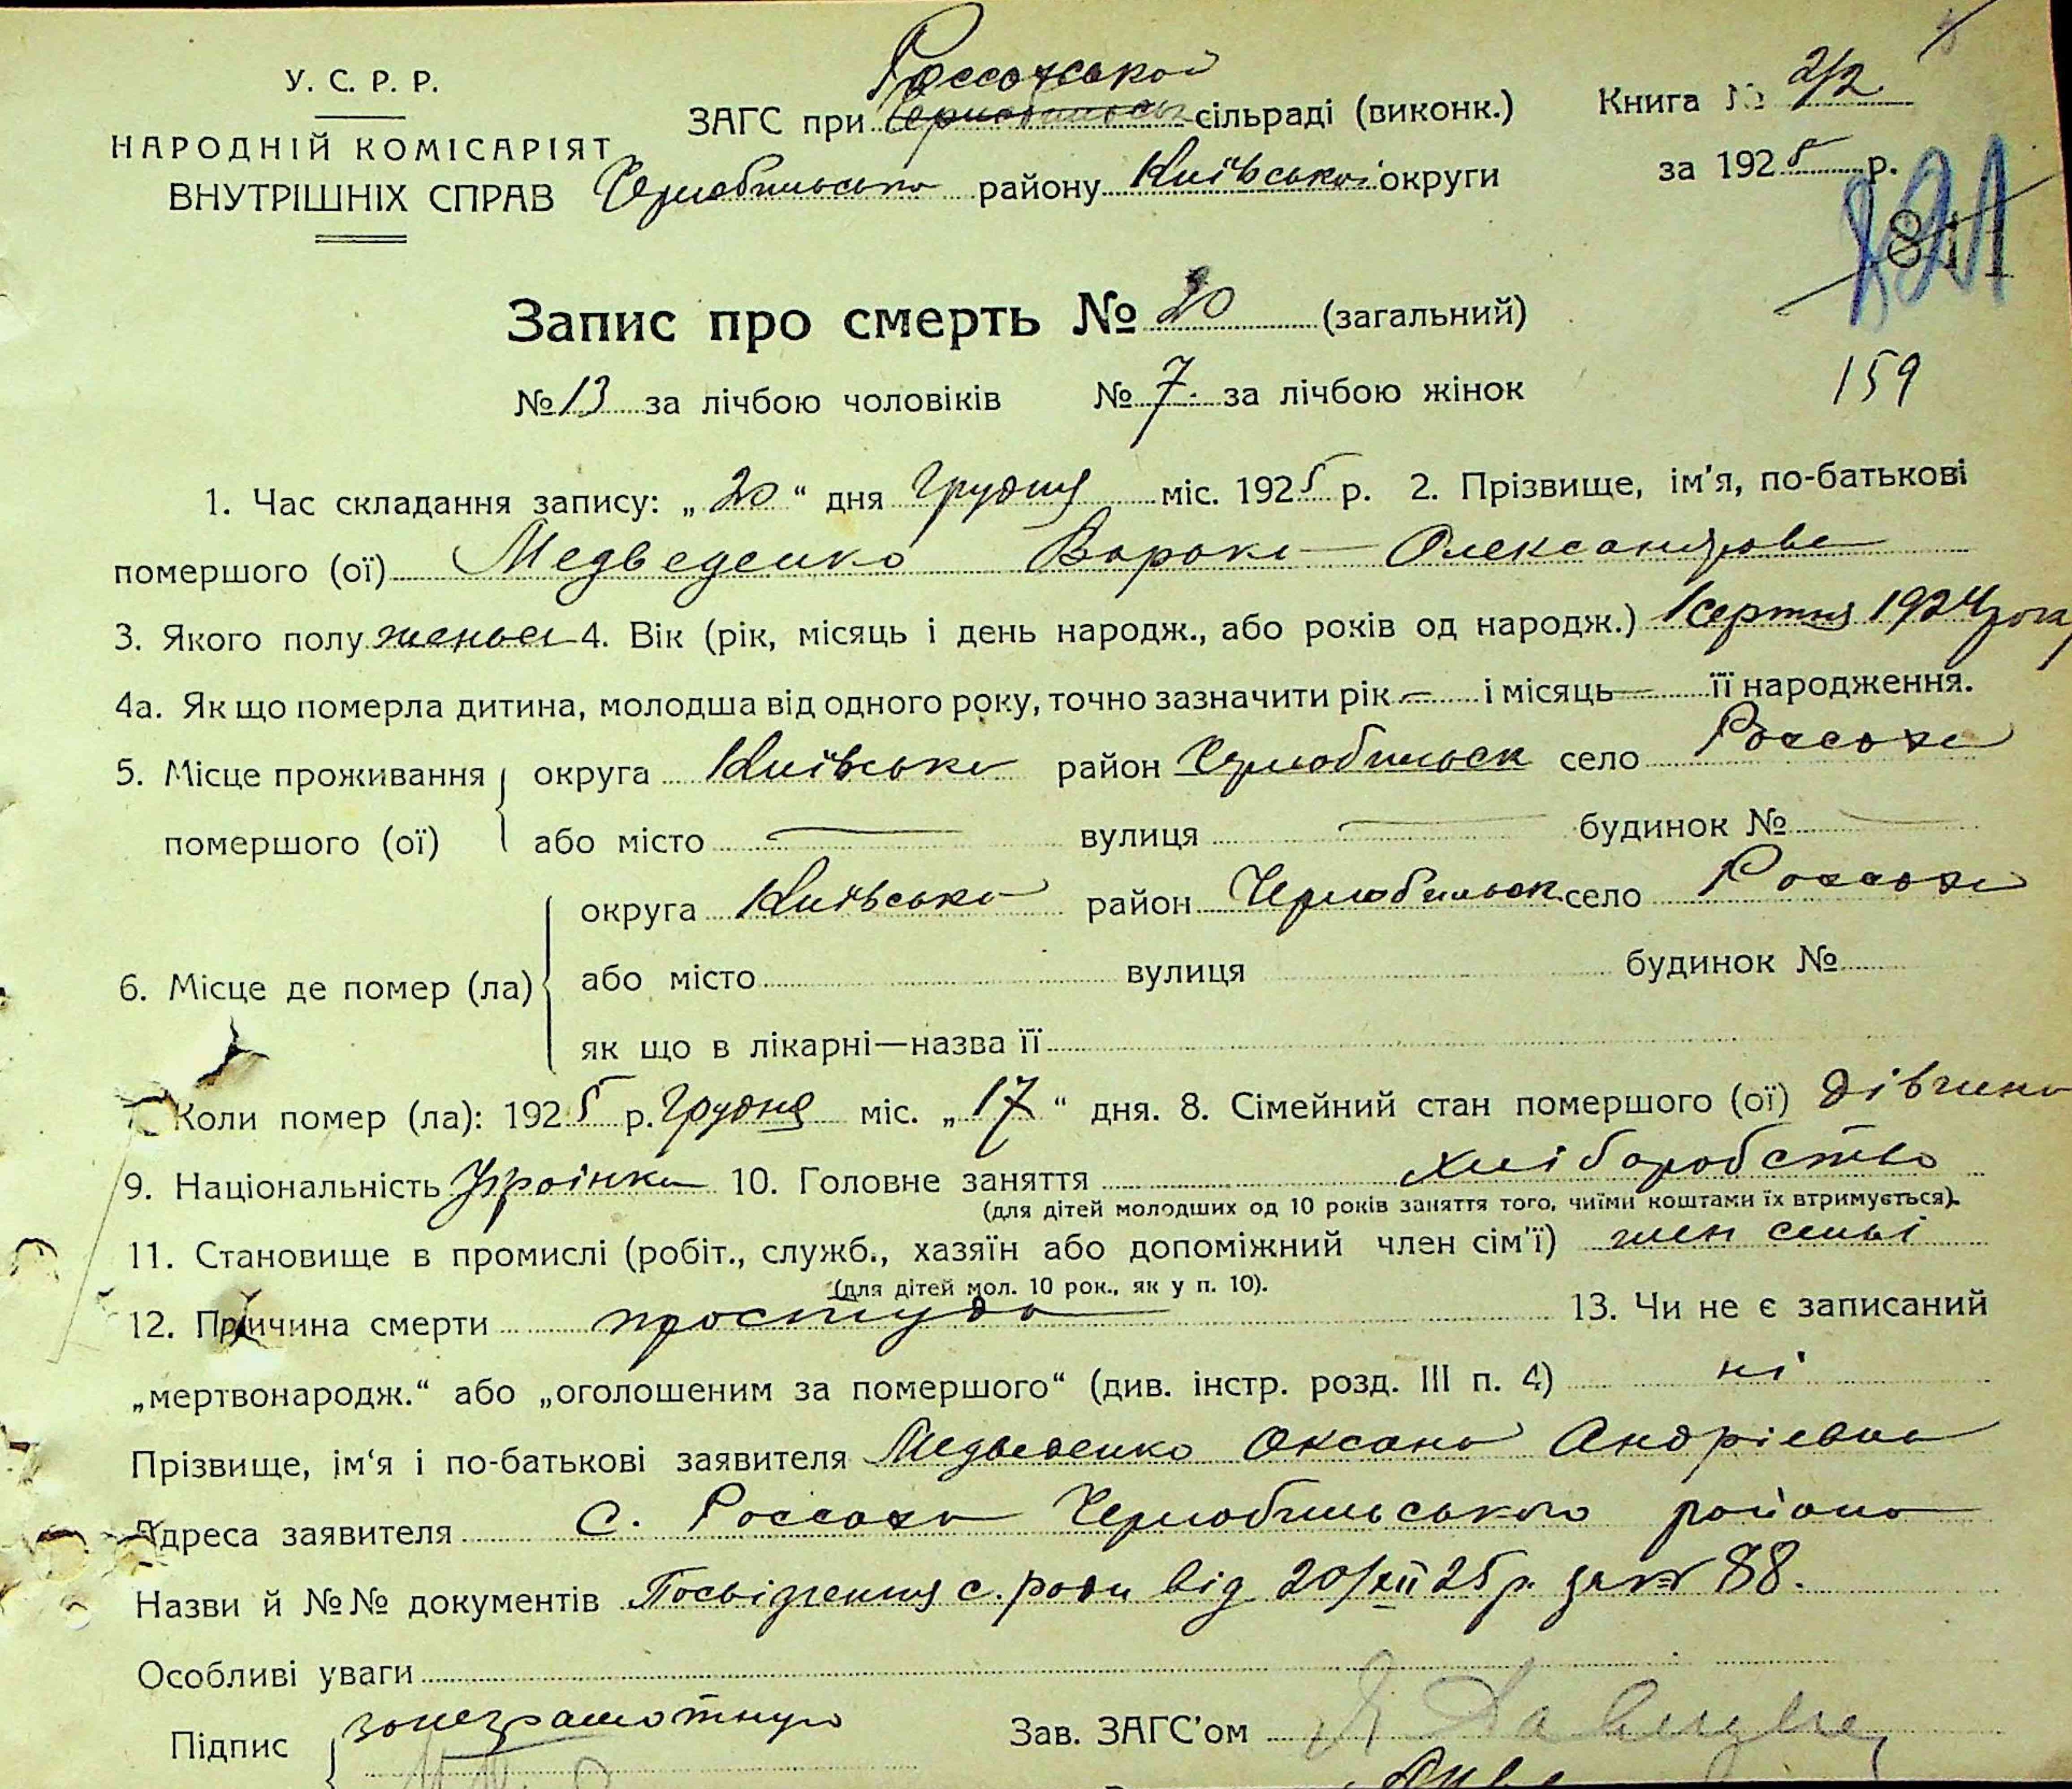 У. С. Р. Р.
НАРОДНІЙ КОМІСАРІЯТ
ВНУТРІШНІХ СПРАВ
Россохської
ЗАГС при сільраді (виконк.)
Чернобильського району Київської округи
Книга № 2/2
за 1925 р.
821
Запис про смерть № 20 (загальний)
№ 13 за лічбою чоловіків № 7. за лічбою жінок
159
1. Час складання запису: „ 20 “ дня Грудня міс. 1925 р. 2. Прізвище, ім'я, по-батькові
помершого (ої) Медведенко Варока Олександрова
3. Якого полу женьск 4. Вік (рік, місяць і день народж., або років од народж.) 1 серпня 1924 года
4а. Як що померла дитина, молодша від одного року, точно зазначити рік — і місяць — її народження.
5. Місце проживання помершого (ої) округа Київська район Чернобильськ село Россоха
або місто — вулиця — будинок № —
6. Місце де помер (ла) округа Київська район Чернобильськ село Россоха
або місто вулиця будинок №
як що в лікарні—назва її
7. Коли помер (ла): 1925 р. Грудня міс. „ 17 “ дня. 8. Сімейний стан помершого (ої) дівчина
9. Національність Україінка 10. Головне заняття хліборобство
(для дітей молодших од 10 років заняття того, чиїми коштами їх втримується).
11. Становище в промислі (робіт., служб., хазяїн або допоміжний член сім'ї) член семьі
(для дітей мол. 10 рок., як у п. 10).
12. Причина смерти простуда 13. Чи не є записаний
„мертвонародж.“ або „оголошеним за помершого“ (див. інстр. розд. III п. 4) ні
Прізвище, ім'я і по-батькові заявителя Медведенко Оксана Андріевна
Адреса заявителя с. Россоха Чернобильського района
Назви й №№ документів Посвідчення с. ради від 20/XII 25 р. за № 88.
Особливі уваги
Підпис за неграмотную
Зав. ЗАГС'ом